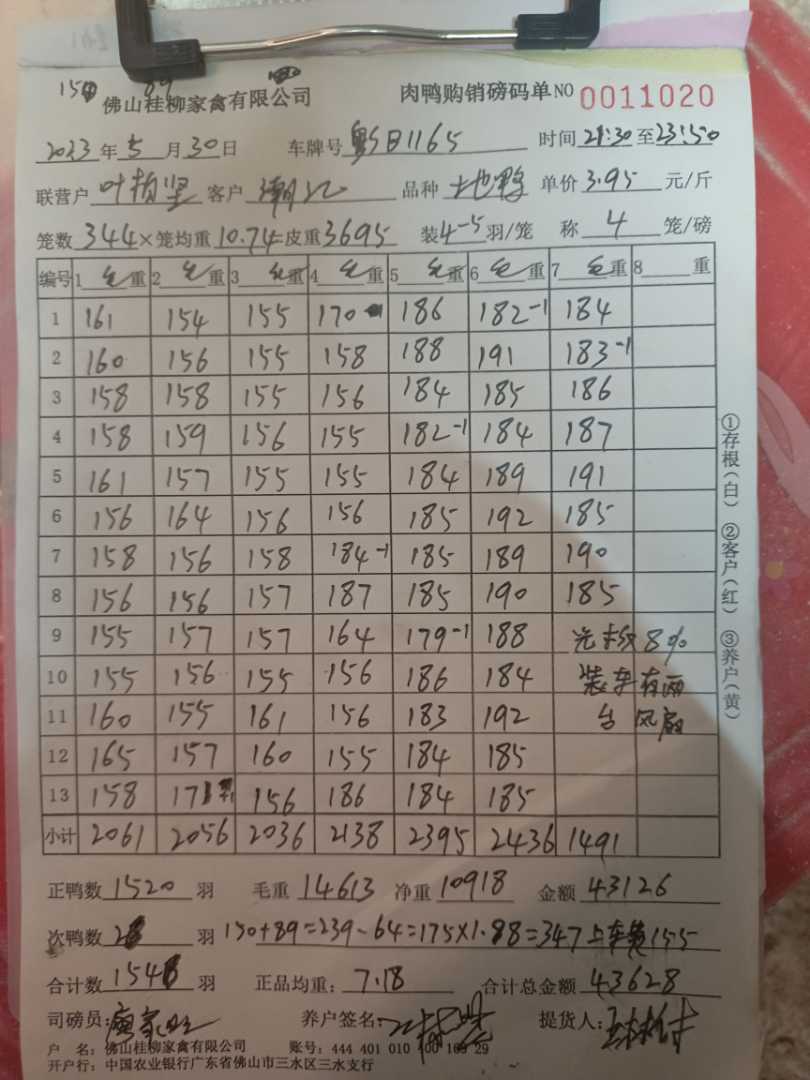 佛山桂柳家禽有限公司 肉鸭购销磅码单NO 0011020
2023年5月30日 车牌号 粤S日1165 时间21:30至23:50
联营户 叶 坚 客户 品种 土地鸭 单价3.95元/斤
笼数344×笼均重10.74皮重3695 装4-5羽/笼 称4笼/磅
编号 1 毛重 2 毛重 3 毛重 4 毛重 5 毛重 6 毛重 7 毛重 8 重
1 161 154 155 170 186 182-1 184
2 160 156 155 158 188 191 183-1
3 158 158 155 156 184 185 186
4 158 159 156 155 182-1 184 187
5 161 157 155 155 184 189 191
6 156 164 156 156 185 192 185
7 158 156 158 184-1 185 189 190
8 156 156 157 187 185 190 185
9 155 157 157 164 179-1 188 光 8%
10 155 156 155 156 186 184 装车有两
11 160 155 161 156 183 192 台风扇
12 165 157 160 155 184 185
13 158 171 156 186 184 185
小计 2061 2056 2036 2138 2395 2436 1491
正鸭数1520羽 毛重14613 净重10918 金额43126
次鸭数 羽 150+89=239-64=175×1.88=347上车费155
合计数 羽 正品均重:7.18 合计总金额43628
司磅员: 养户签名: 提货人:
户 名:佛山桂柳家禽有限公司 账号:444 401 010 400 169 29
开户行:中国农业银行广东省佛山市三水区三水支行
①存根(白) ②客户(红) ③养户(黄)